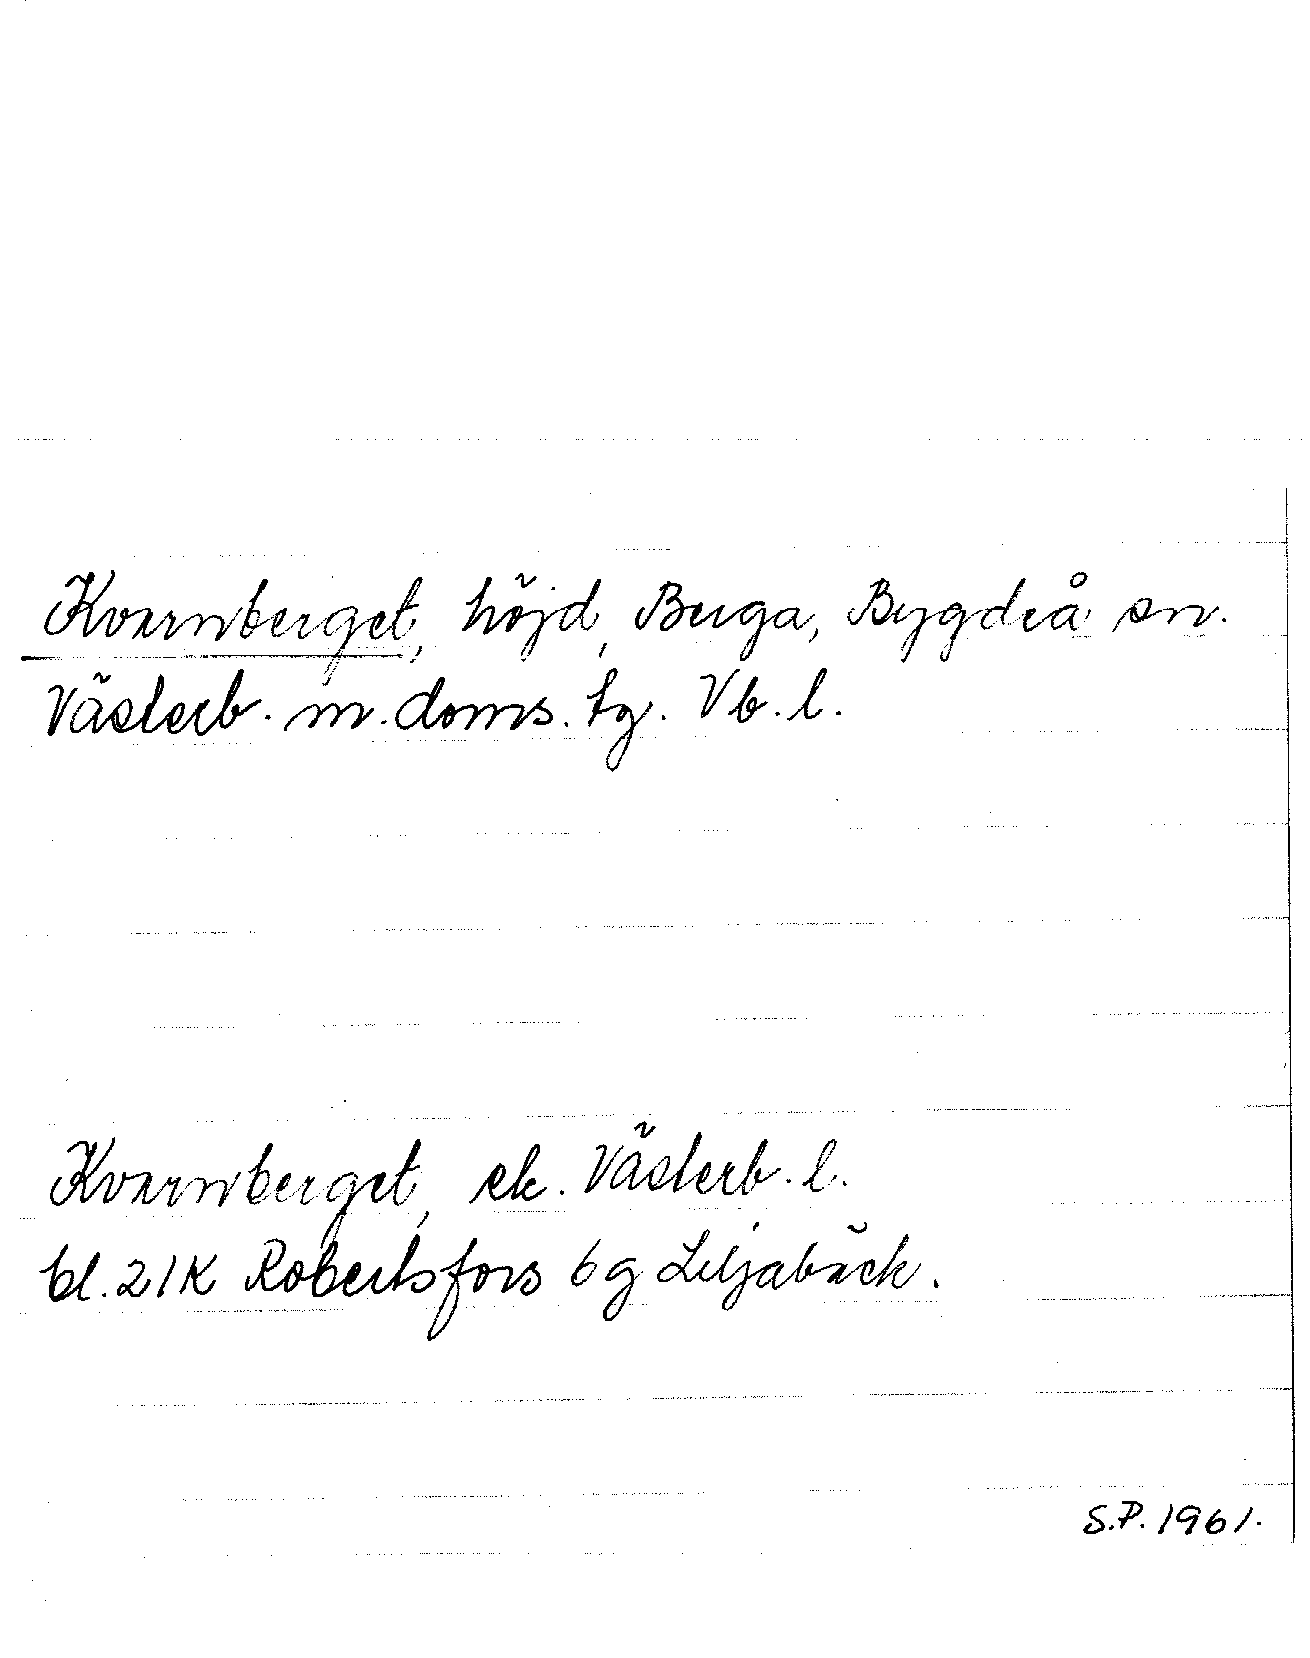 Kvarnberget, höjd, Berga, Bygdeå sn.
Västerb. m. doms. tg. Vb. l.
Kvarnberget, ek. Västerb. l.
bl. 21K Robertsfors 6g Liljabäck.
S.P. 1961.